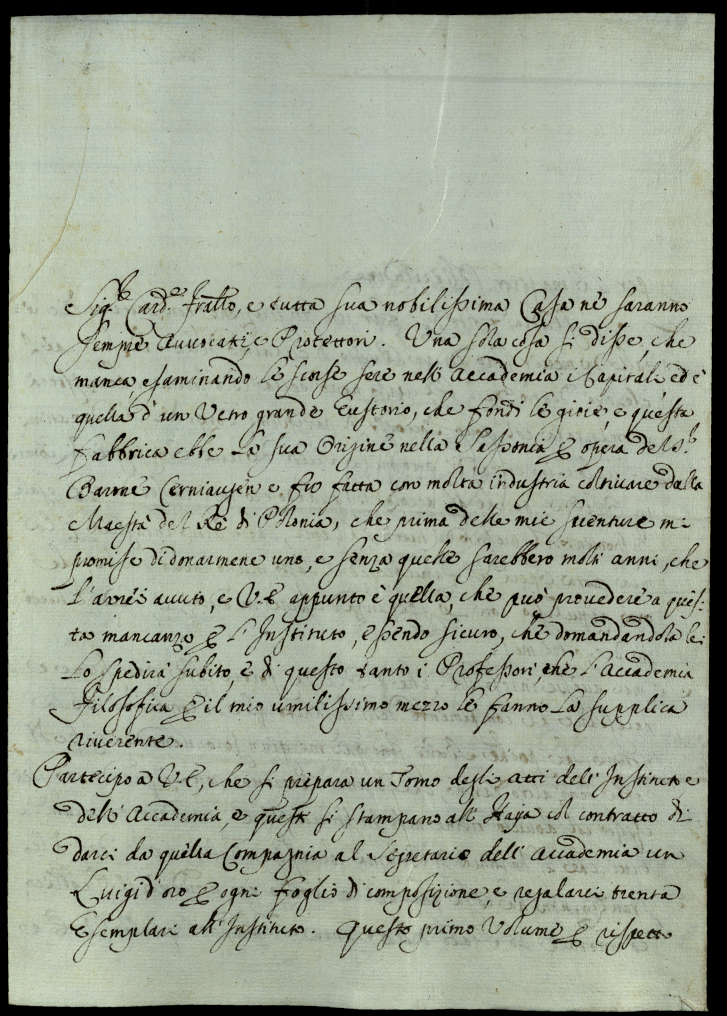 Sig.r Card.e Fratto, e tutta sua nobilissima Casa ne saranno
sempre Avvocati, e Protettori. Una sola cosa si disse, che
manca, esaminando le scorse sere nell'Accademia i Capitali ed è
quella d'un Vetro grande Eustorio, che fondi le gioie, e questa
Fabbrica ebbe la sua Origine nella Sassonia p opera del S.r
Barone Cerniausen e fù fatta con molta industria coltivare dalla
Maestà del Rè di Polonia, che prima delle mie sventure mi
promise di donarmene uno, e senza queste sarebbero molti anni, che
l'avrei avuto, e V.E. appunto è quella, che può provedere a ques-
ta mancanza p l'Instituto, essendo sicuro, che domandandola le
lo spedirà subito, e di questo tanto i Professori, che l'Accademia
Filosofica p il mio umilissimo mezzo le fanno la supplica
riverente.
Partecipo a V.E, che si prepara un Tomo degli Atti dell'Instituto e
dell'Accademia, e questi si stampano all'Haja col contratto di
darci da quella Compagnia al Segretario dell'Accademia un
Luigi d'oro p ogni foglio di composizione, e regalarci trenta
Esemplari all'Instituto. Questo primo Volume p rispetto